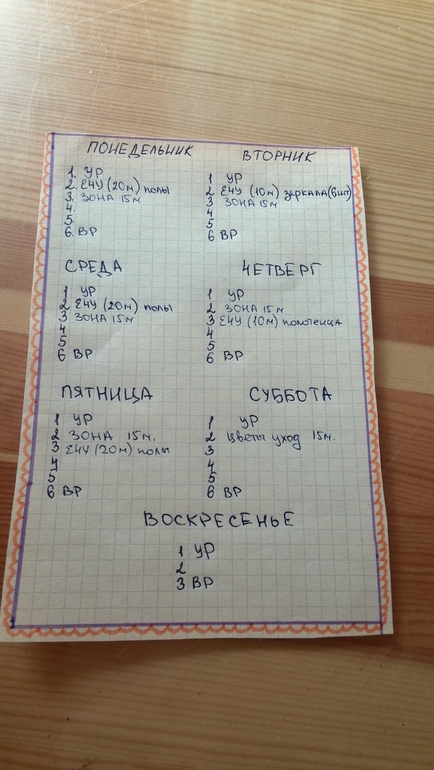 ПОНЕДЕЛЬНИК
1. УР
2. ЕЧУ (20м) полы
3. ЗОНА 15м
4.
5.
6. ВР
ВТОРНИК
1 УР
2 ЕЧУ (10м) зеркала (6шт)
3 ЗОНА 15м
4
5
6 ВР
СРЕДА
1 УР
2 ЕЧУ (20м) полы
3 ЗОНА 15м
4
5
6 ВР
ЧЕТВЕРГ
1 УР
2 ЗОНА 15м
3 ЕЧУ (10м) полотенца
4
5
6 ВР
ПЯТНИЦА
1 УР
2 ЗОНА 15м.
3 ЕЧУ (20м) полы
4
5
6 ВР
СУББОТА
1 УР
2 цветы уход 15м.
3
4
5
6 ВР
ВОСКРЕСЕНЬЕ
1 УР
2
3 ВР